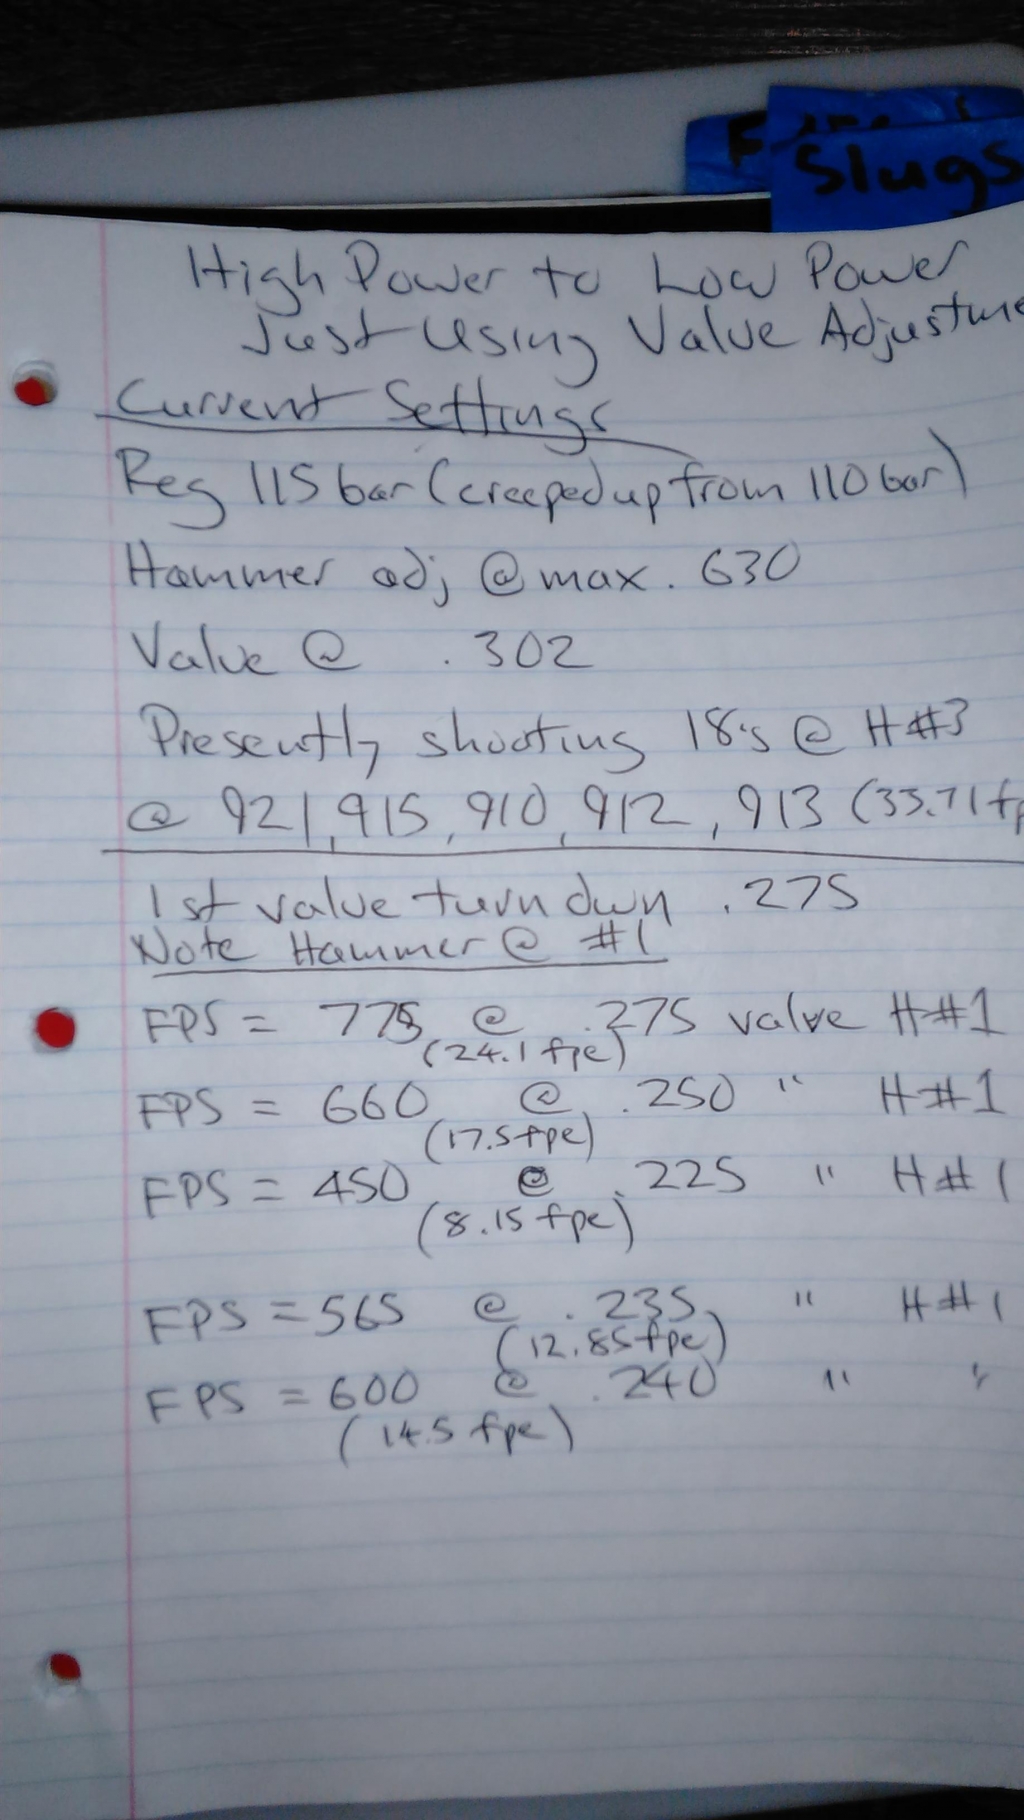 Slugs
High Power to Low Power
Just Using Value Adjustme
Current Settings
Reg 115 bar (creeped up from 110 bar)
Hammer adj @ max .630
Value @ .302
Presently shooting 18's @ H#3
@ 921, 915, 910, 912, 913 (33.71 fp
1st value turn down .275
Note Hammer @ #1
FPS = 775 @ .275 valve H#1
(24.1 fpe)
FPS = 660 @ .250 " H#1
(17.5 fpe)
FPS = 450 @ .225 " H#1
(8.15 fpe)
FPS = 565 @ .235 " H#1
(12.85 fpe)
FPS = 600 @ .240 " "
(14.5 fpe)